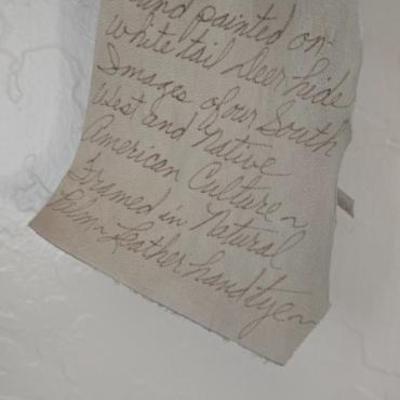 painted on
White tail Deer hide
Images of our South
West and Native
American Culture ~
Framed in Natural
Palm ~ Leather hand tye ~